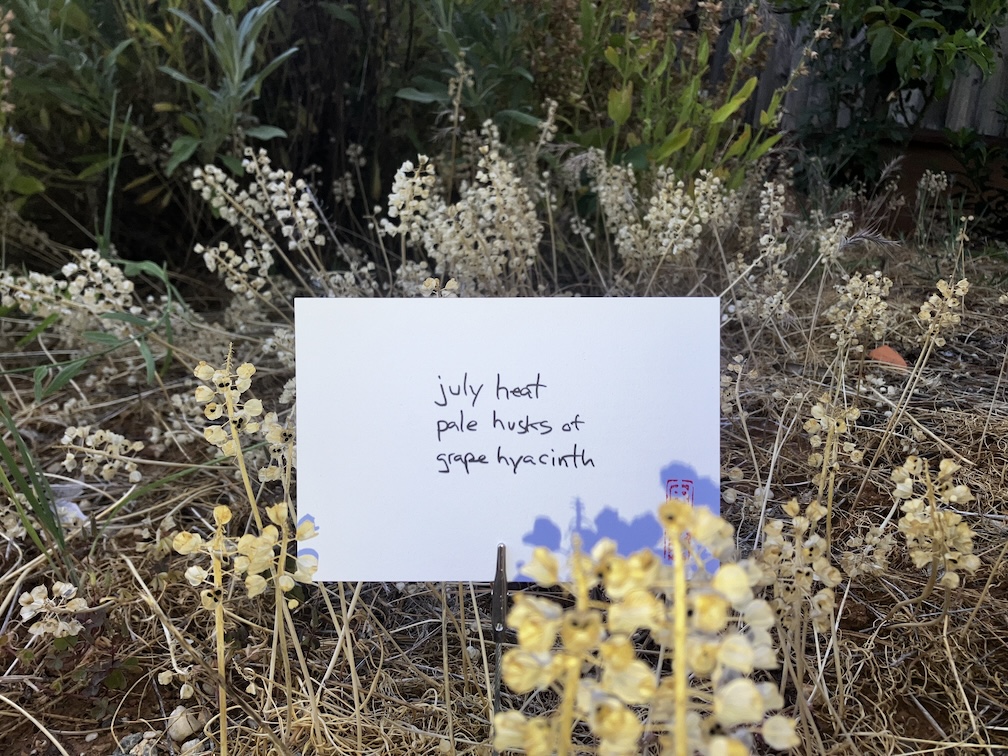 july heat
pale husks of
grape hyacinth